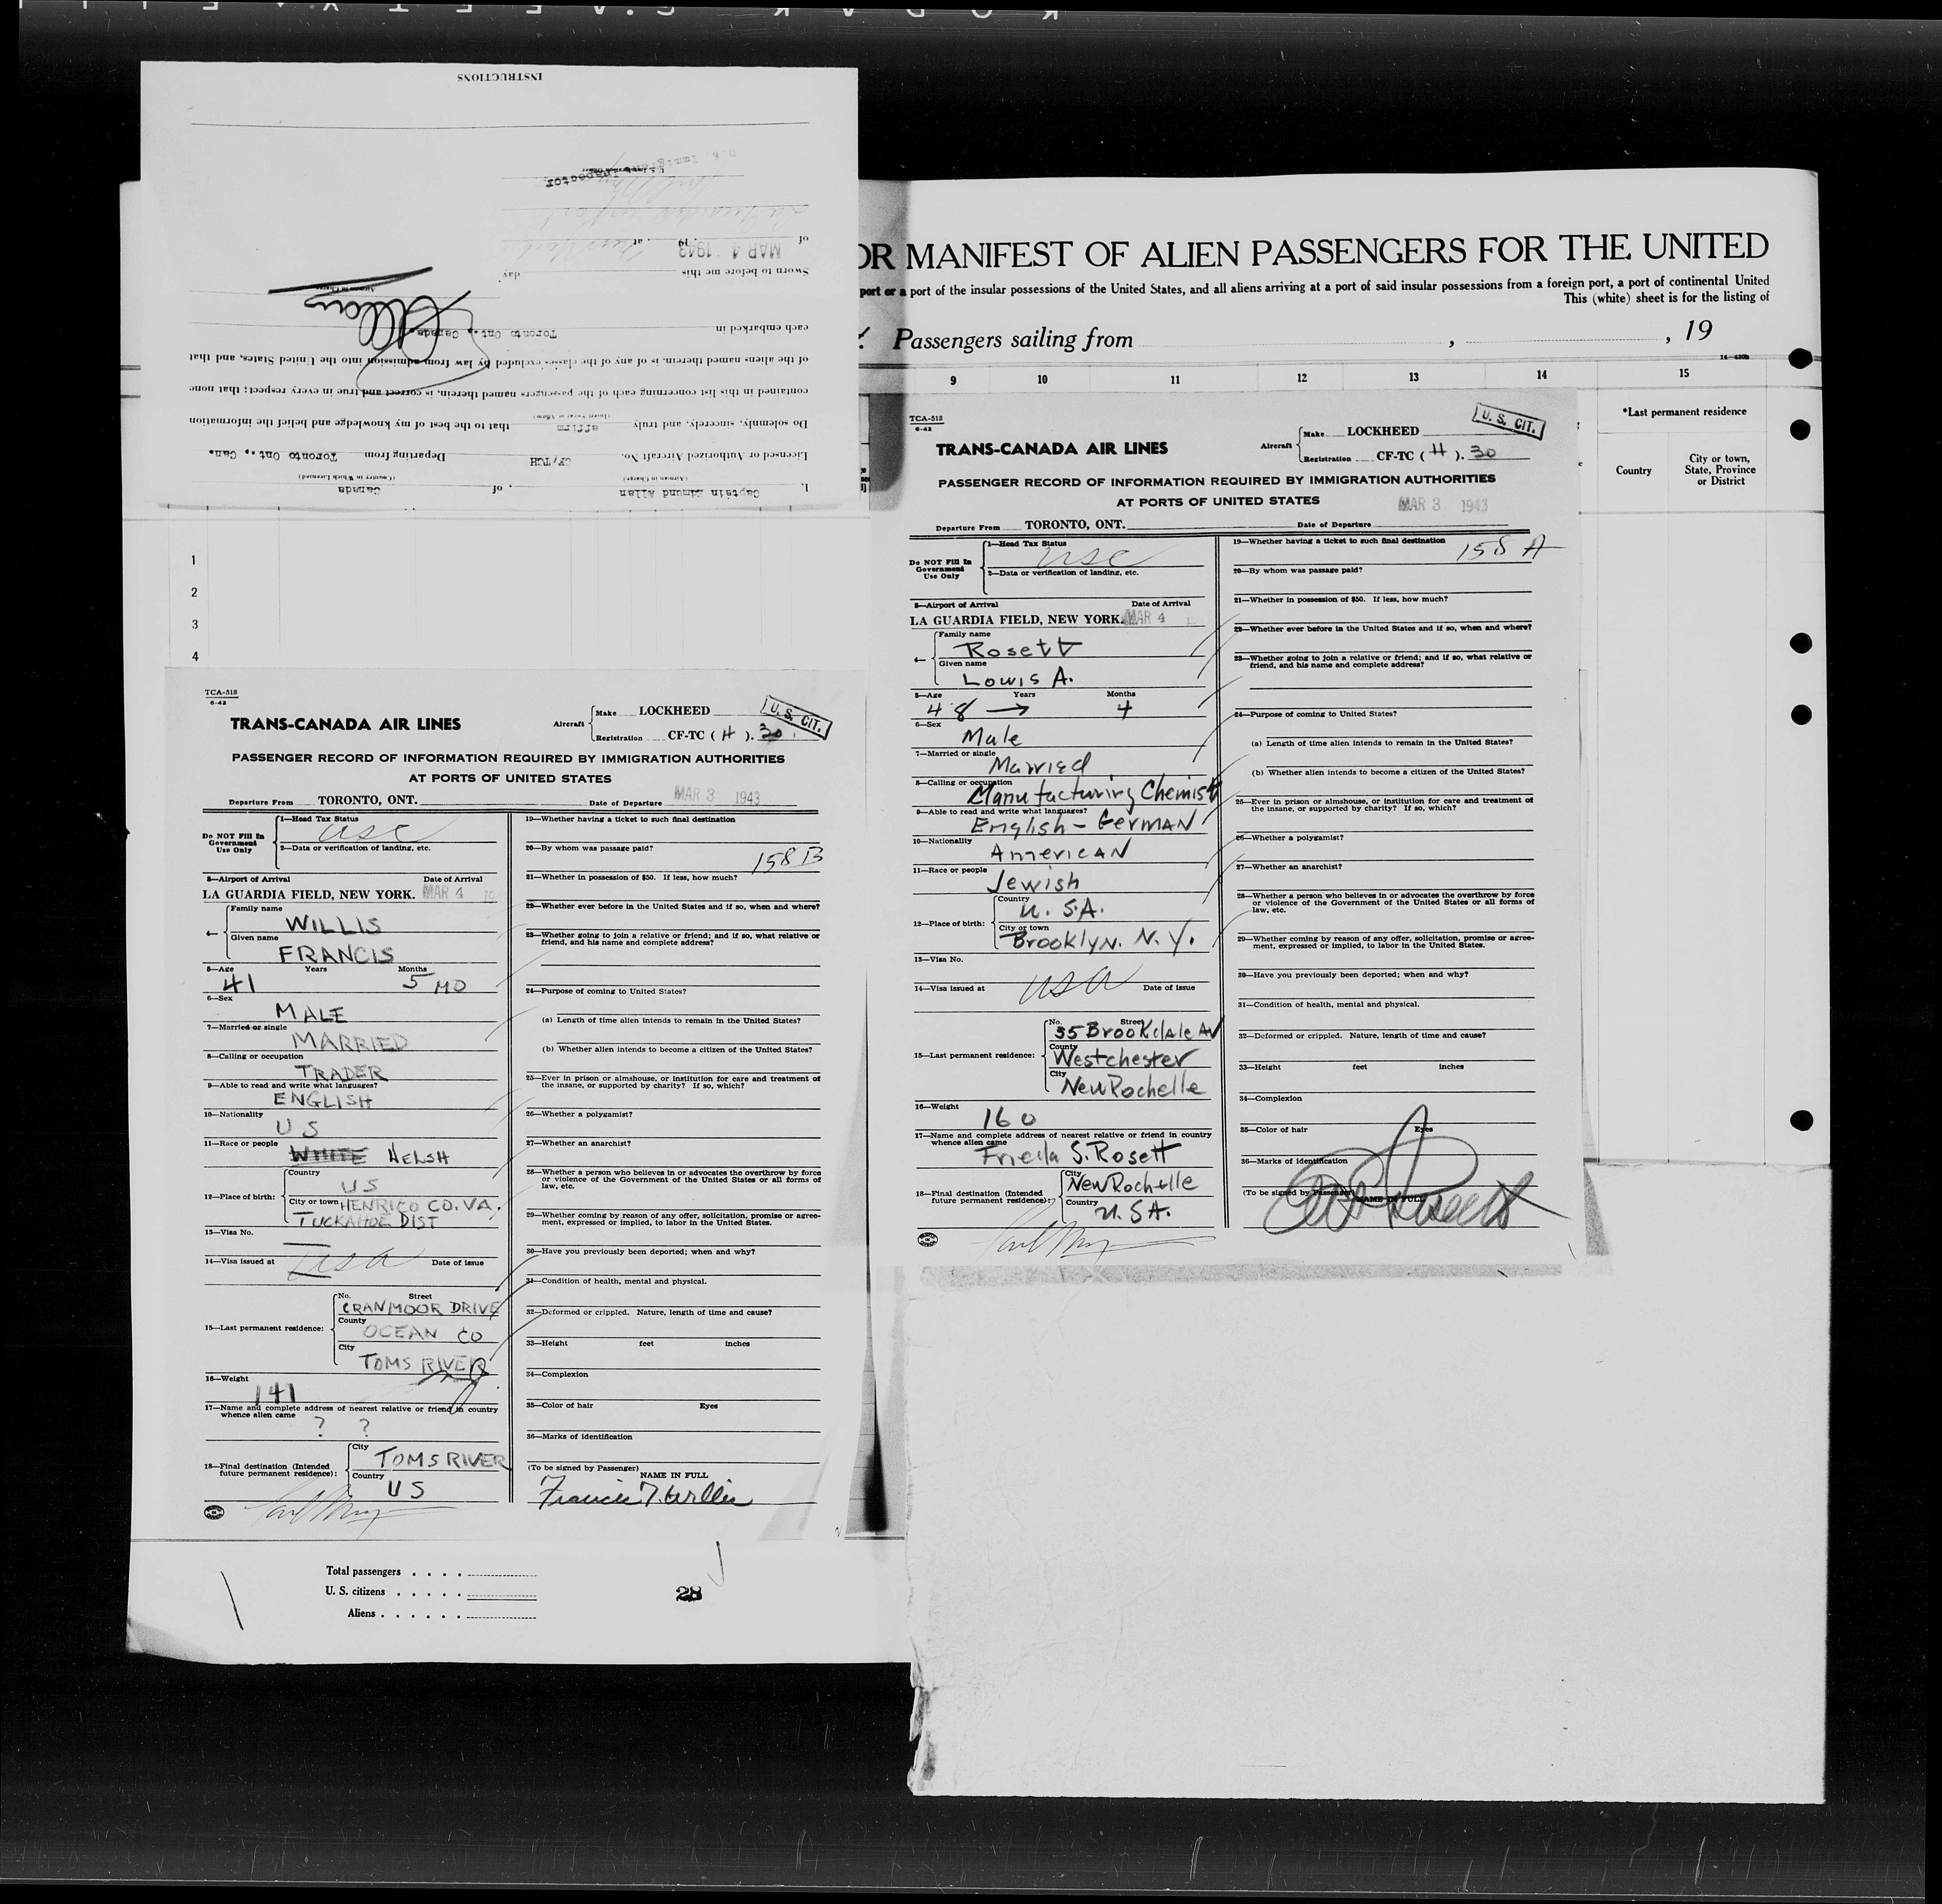 INSTRUCTIONS
U. S. Immigrant Inspector
of MAR 4 1943, 19 , at New York
Sworn to before me this day
each embarked in Toronto Ont., Canada.
of the aliens named therein, is of any of the classes excluded by law from admission into the United States, and that
contained in this list concerning each of the passengers named therein, is correct and true in every respect; that none
Do solemnly, sincerely, and truly affirm that to the best of my knowledge and belief the information
Licensed or Authorized Aircraft No. CF/TCH Departing from Toronto Ont., Can.
(Airman in Charge) (Country in Which Licensed)
I, Captain Edmund Allan , of Canada
OR MANIFEST OF ALIEN PASSENGERS FOR THE UNITED
port or a port of the insular possessions of the United States, and all aliens arriving at a port of said insular possessions from a foreign port, a port of continental United
This (white) sheet is for the listing of
Passengers sailing from , , 19
9 10 11 12 13 14 15
*Last permanent residence
Country
City or town, State, Province or District
1
2
3
4
TCA-518
6-42
TRANS-CANADA AIR LINES
Aircraft
Make LOCKHEED
Registration CF-TC ( H ). 30
U. S. CIT.
PASSENGER RECORD OF INFORMATION REQUIRED BY IMMIGRATION AUTHORITIES
AT PORTS OF UNITED STATES
MAR 3 1943
Departure From TORONTO, ONT. Date of Departure
Do NOT Fill In Government Use Only
1—Head Tax Status
USC
2—Data or verification of landing, etc.
3—Airport of Arrival Date of Arrival
LA GUARDIA FIELD, NEW YORK. MAR 4
4— Family name
WILLIS
Given name
FRANCIS
5—Age Years Months
41 5 MO
6—Sex
MALE
7—Married or single
MARRIED
8—Calling or occupation
TRADER
9—Able to read and write what languages?
ENGLISH
10—Nationality
US
11—Race or people
WHITE WELSH
12—Place of birth:
Country
US
City or town HENRICO CO. VA.
TUCKAHOE DIST
13—Visa No.
14—Visa issued at USA Date of issue
15—Last permanent residence:
No. Street
CRANMOOR DRIVE
County
OCEAN CO
City
TOMS RIVER
16—Weight
141
17—Name and complete address of nearest relative or friend in country
whence alien came
? ?
18—Final destination (Intended
future permanent residence):
City
TOMS RIVER
Country
US
19—Whether having a ticket to such final destination
20—By whom was passage paid?
158 B
21—Whether in possession of $50. If less, how much?
22—Whether ever before in the United States and if so, when and where?
23—Whether going to join a relative or friend; and if so, what relative or
friend, and his name and complete address?
24—Purpose of coming to United States?
(a) Length of time alien intends to remain in the United States?
(b) Whether alien intends to become a citizen of the United States?
25—Ever in prison or almshouse, or institution for care and treatment of
the insane, or supported by charity? If so, which?
26—Whether a polygamist?
27—Whether an anarchist?
28—Whether a person who believes in or advocates the overthrow by force
or violence of the Government of the United States or all forms of
law, etc.
29—Whether coming by reason of any offer, solicitation, promise or agree-
ment, expressed or implied, to labor in the United States.
30—Have you previously been deported; when and why?
31—Condition of health, mental and physical.
32—Deformed or crippled. Nature, length of time and cause?
33—Height feet inches
34—Complexion
35—Color of hair Eyes
36—Marks of identification
(To be signed by Passenger)
NAME IN FULL
Francis T. Willis
TCA-518
6-42
TRANS-CANADA AIR LINES
Aircraft
Make LOCKHEED
Registration CF-TC ( H ). 30
U. S. CIT.
PASSENGER RECORD OF INFORMATION REQUIRED BY IMMIGRATION AUTHORITIES
AT PORTS OF UNITED STATES
MAR 3 1943
Departure From TORONTO, ONT. Date of Departure
Do NOT Fill In Government Use Only
1—Head Tax Status
USC
2—Data or verification of landing, etc.
3—Airport of Arrival Date of Arrival
LA GUARDIA FIELD, NEW YORK. MAR 4
4— Family name
Rosett
Given name
Lowis A.
5—Age Years Months
48 → 4
6—Sex
Male
7—Married or single
Married
8—Calling or occupation
Manufacturing Chemist
9—Able to read and write what languages?
English - German
10—Nationality
American
11—Race or people
Jewish
12—Place of birth:
Country
U. S.A.
City or town
Brooklyn. N. Y.
13—Visa No.
14—Visa issued at USA Date of issue
15—Last permanent residence:
No. Street
35 Brookdale Av
County
Westchester
City
New Rochelle
16—Weight
160
17—Name and complete address of nearest relative or friend in country
whence alien came
Frieda S. Rosett
18—Final destination (Intended
future permanent residence):
City
New Rochelle
Country
U. S A.
19—Whether having a ticket to such final destination
158 A
20—By whom was passage paid?
21—Whether in possession of $50. If less, how much?
22—Whether ever before in the United States and if so, when and where?
23—Whether going to join a relative or friend; and if so, what relative or
friend, and his name and complete address?
24—Purpose of coming to United States?
(a) Length of time alien intends to remain in the United States?
(b) Whether alien intends to become a citizen of the United States?
25—Ever in prison or almshouse, or institution for care and treatment of
the insane, or supported by charity? If so, which?
26—Whether a polygamist?
27—Whether an anarchist?
28—Whether a person who believes in or advocates the overthrow by force
or violence of the Government of the United States or all forms of
law, etc.
29—Whether coming by reason of any offer, solicitation, promise or agree-
ment, expressed or implied, to labor in the United States.
30—Have you previously been deported; when and why?
31—Condition of health, mental and physical.
32—Deformed or crippled. Nature, length of time and cause?
33—Height feet inches
34—Complexion
35—Color of hair Eyes
36—Marks of identification
(To be signed by Passenger) NAME IN FULL
Total passengers
U. S. citizens
Aliens
28